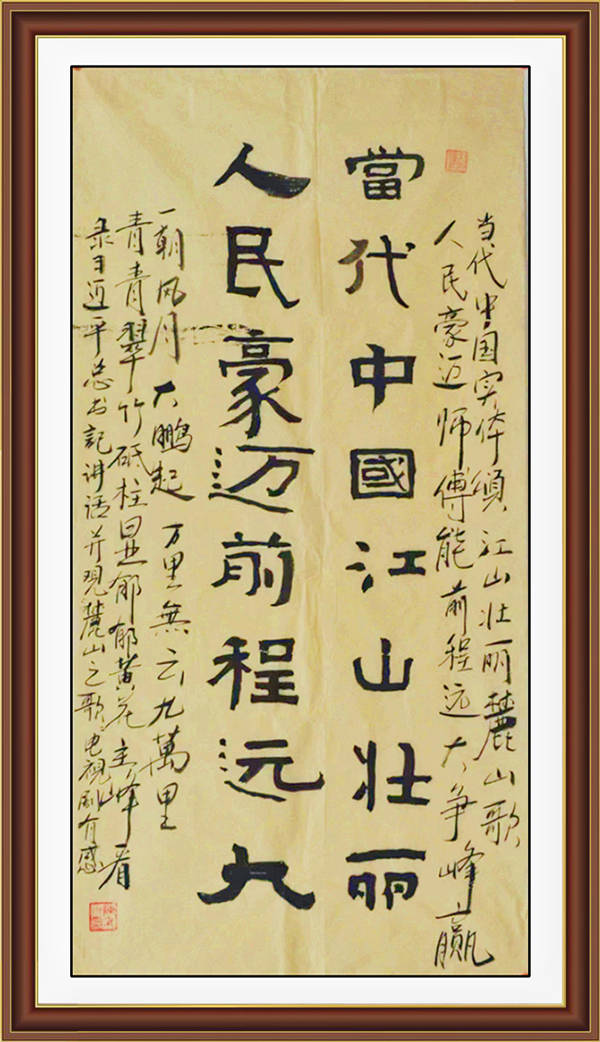 当代中国实体頌江山壮丽麓山歌
人民豪迈师傅能前程远大争峰赢
當代中國江山壮丽
人民豪迈前程远大
一朝风月大鹏起万里無云九萬里
青青翠竹砥柱显郁郁黄花主峰看
录习近平总书記讲话并观麓山之歌电视剧有感